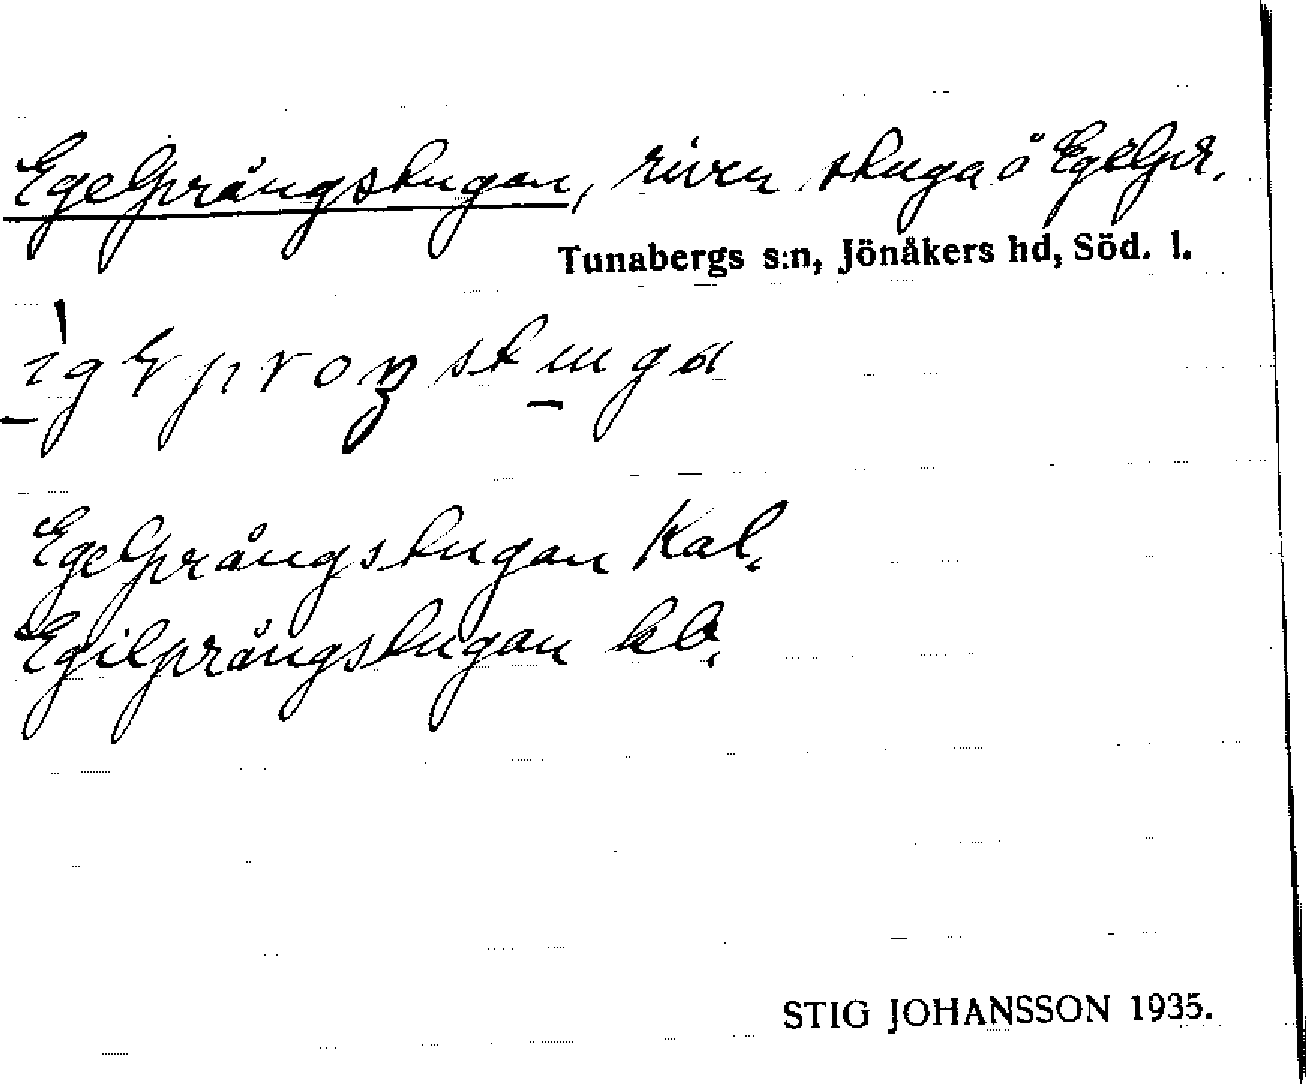 Egelprångstugan, riven stuga å Egelpr.
Tunabergs s:n, Jönåkers hd, Söd. l.
Egelprångstugan Kal.
Egilprångstugan kb.
STIG JOHANSSON 1935.